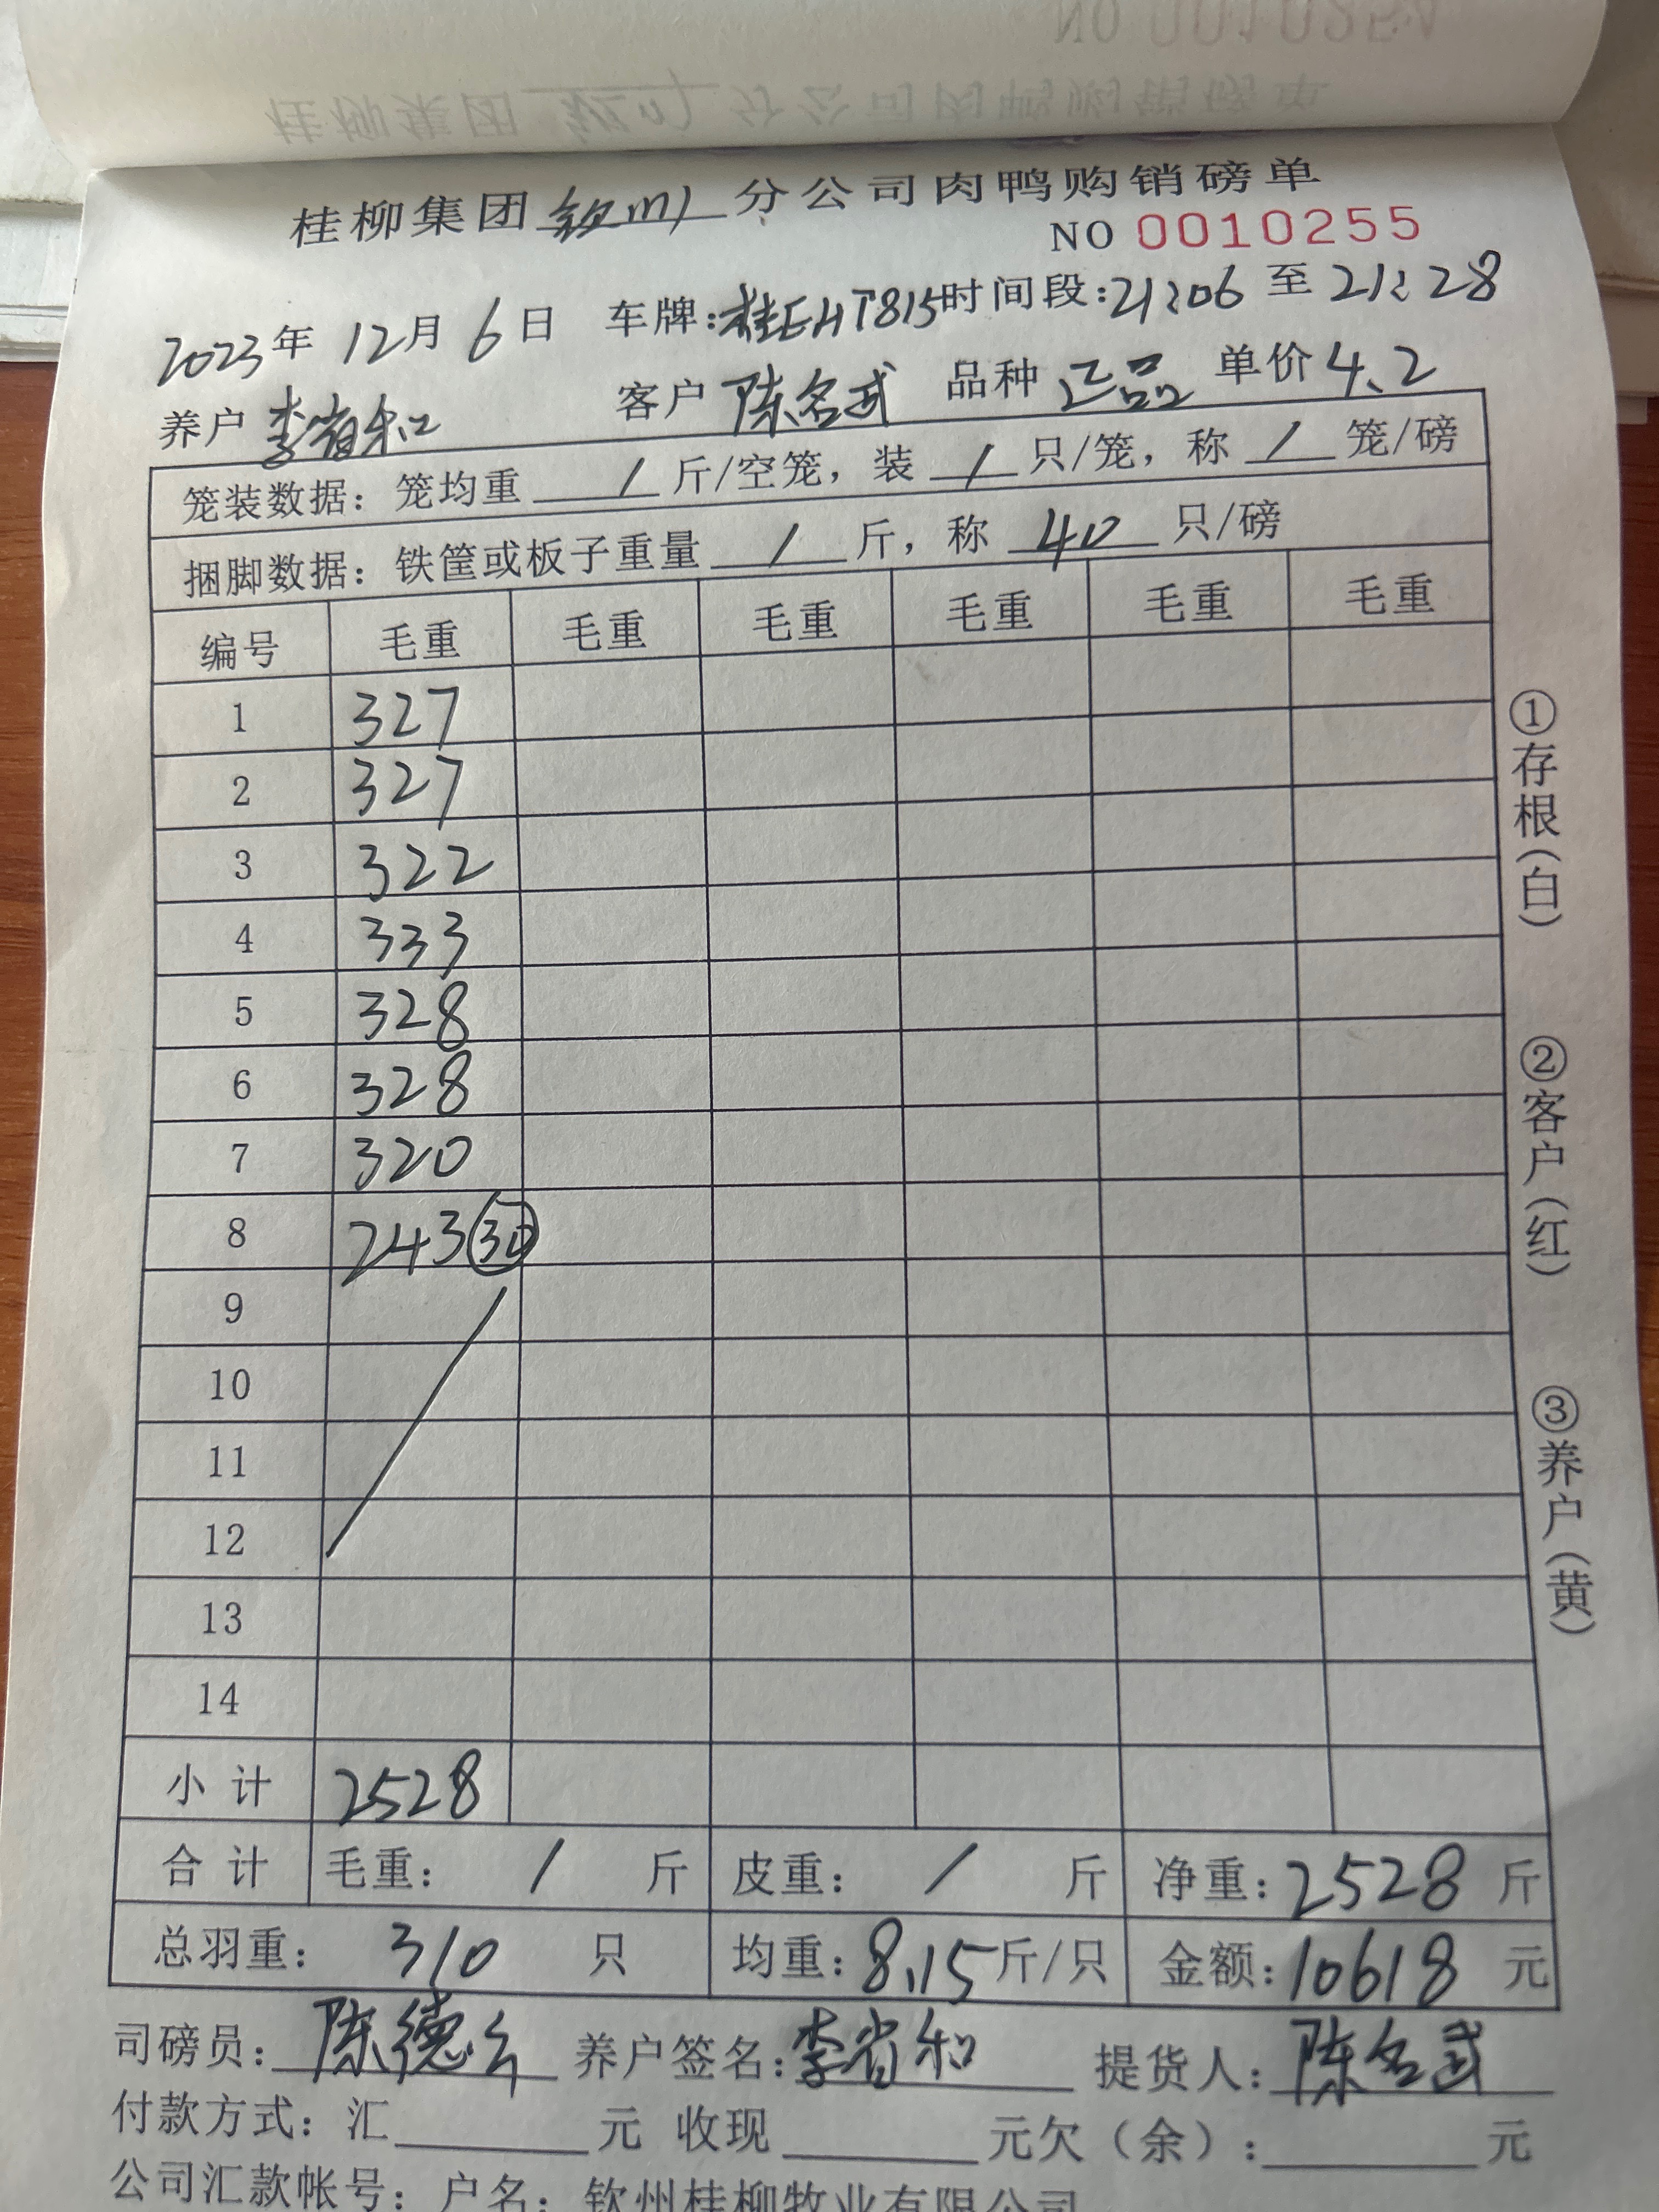 桂柳集团钦州分公司肉鸭购销磅单
NO 0010255
2023年 12月 6日 车牌:桂EHT815 时间段:21:06 至 21:28
养户 李省和 客户 陈名武 品种 正品 单价 4.2
笼装数据：笼均重 / 斤/空笼，装 / 只/笼，称 / 笼/磅
捆脚数据：铁筐或板子重量 / 斤，称 40 只/磅
编号 毛重 毛重 毛重 毛重 毛重 毛重
1 327
2 327
3 322
4 333
5 328
6 328
7 320
8 243 30
9
10
11
12
13
14
小计 2528
合计 毛重： / 斤 皮重： / 斤 净重：2528 斤
总羽重： 310 只 均重：8.15斤/只 金额：10618 元
司磅员：陈德 养户签名：李省和 提货人：陈名武
付款方式：汇 元 收现 元欠（余）： 元
公司汇款帐号：户名：钦州桂柳牧业有限公司
①存根（白）
②客户（红）
③养户（黄）